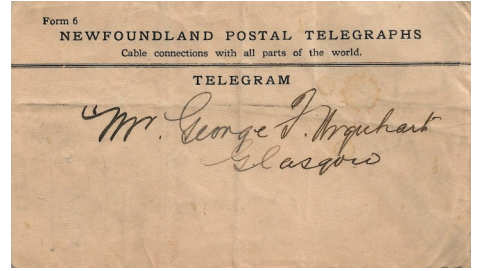 Form 6
NEWFOUNDLAND POSTAL TELEGRAPHS
Cable connections with all parts of the world.
TELEGRAM
Mr. George F. Urquhart
Glasgow